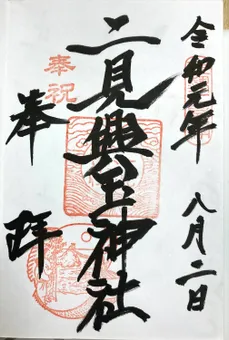 令和元年 八月二日
二見興玉神社
奉祝
奉拜